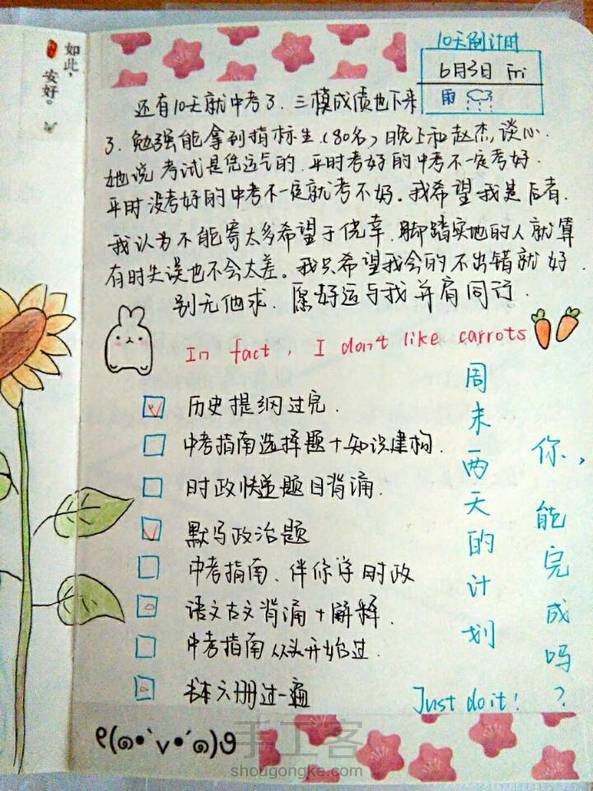 如此，
安好。
10天倒计时
6月3日 Fri
雨
还有10天就中考了. 三模成绩也下来
了. 勉强能拿到指标生(80名) 晚上和赵杰谈心.
她说 考试是凭运气的. 平时考好的中考不一定考好.
平时没考好的中考不一定就考不好。我希望我是后者.
我认为不能寄太多希望于侥幸. 脚踏实地的人就算
有时失误也不会太差。我只希望我会的不出错就好.
别无他求. 愿好运与我并肩同行.
In fact, I don't like carrots
历史提纲过完.
中考指南选择题+知识建构.
时政快递题目背诵.
默写政治题
中考指南. 伴你学 时政
语文古文背诵+解释.
中考指南从头开始过.
书本六册过一遍
周末两天的计划
你，能完成吗？
Just do it!
手工客
shougongke.com